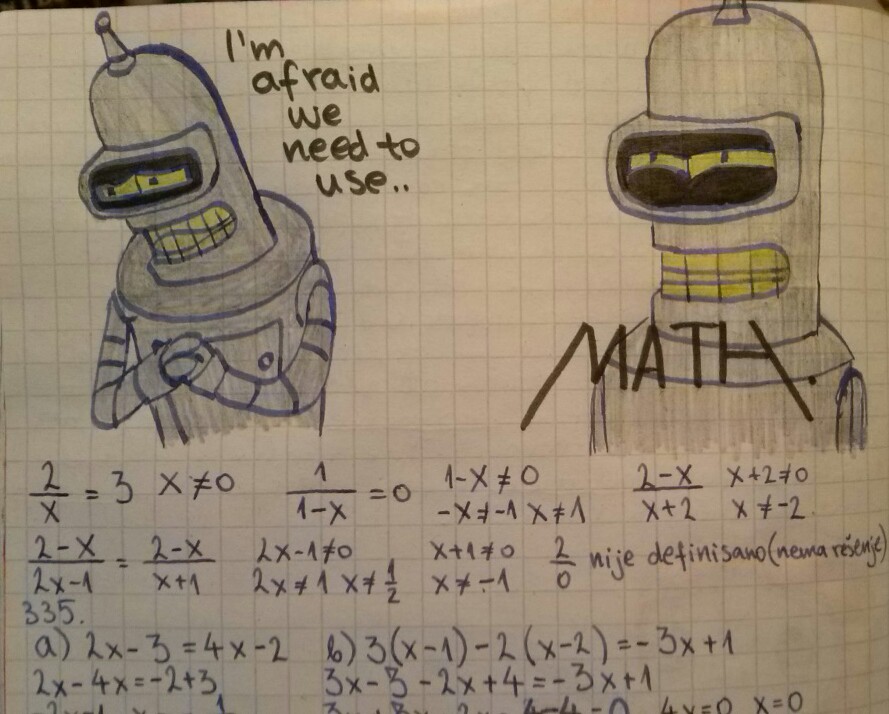 I'm
afraid
we
need to
use..
MATH.
2/x = 3 x≠0
1/(1-x) = 0 1-x≠0
-x≠-1 x≠1
(2-x)/(x+2) x+2≠0
x≠-2
(2-x)/(2x-1) = (2-x)/(x+1) 2x-1≠0
2x≠1 x≠1/2
x+1≠0
x≠-1
2/0 nije definisano (nema rešenje)
335.
a) 2x-3=4x-2
2x-4x=-2+3
b) 3(x-1)-2(x-2)=-3x+1
3x-3-2x+4=-3x+1
4x=0 x=0